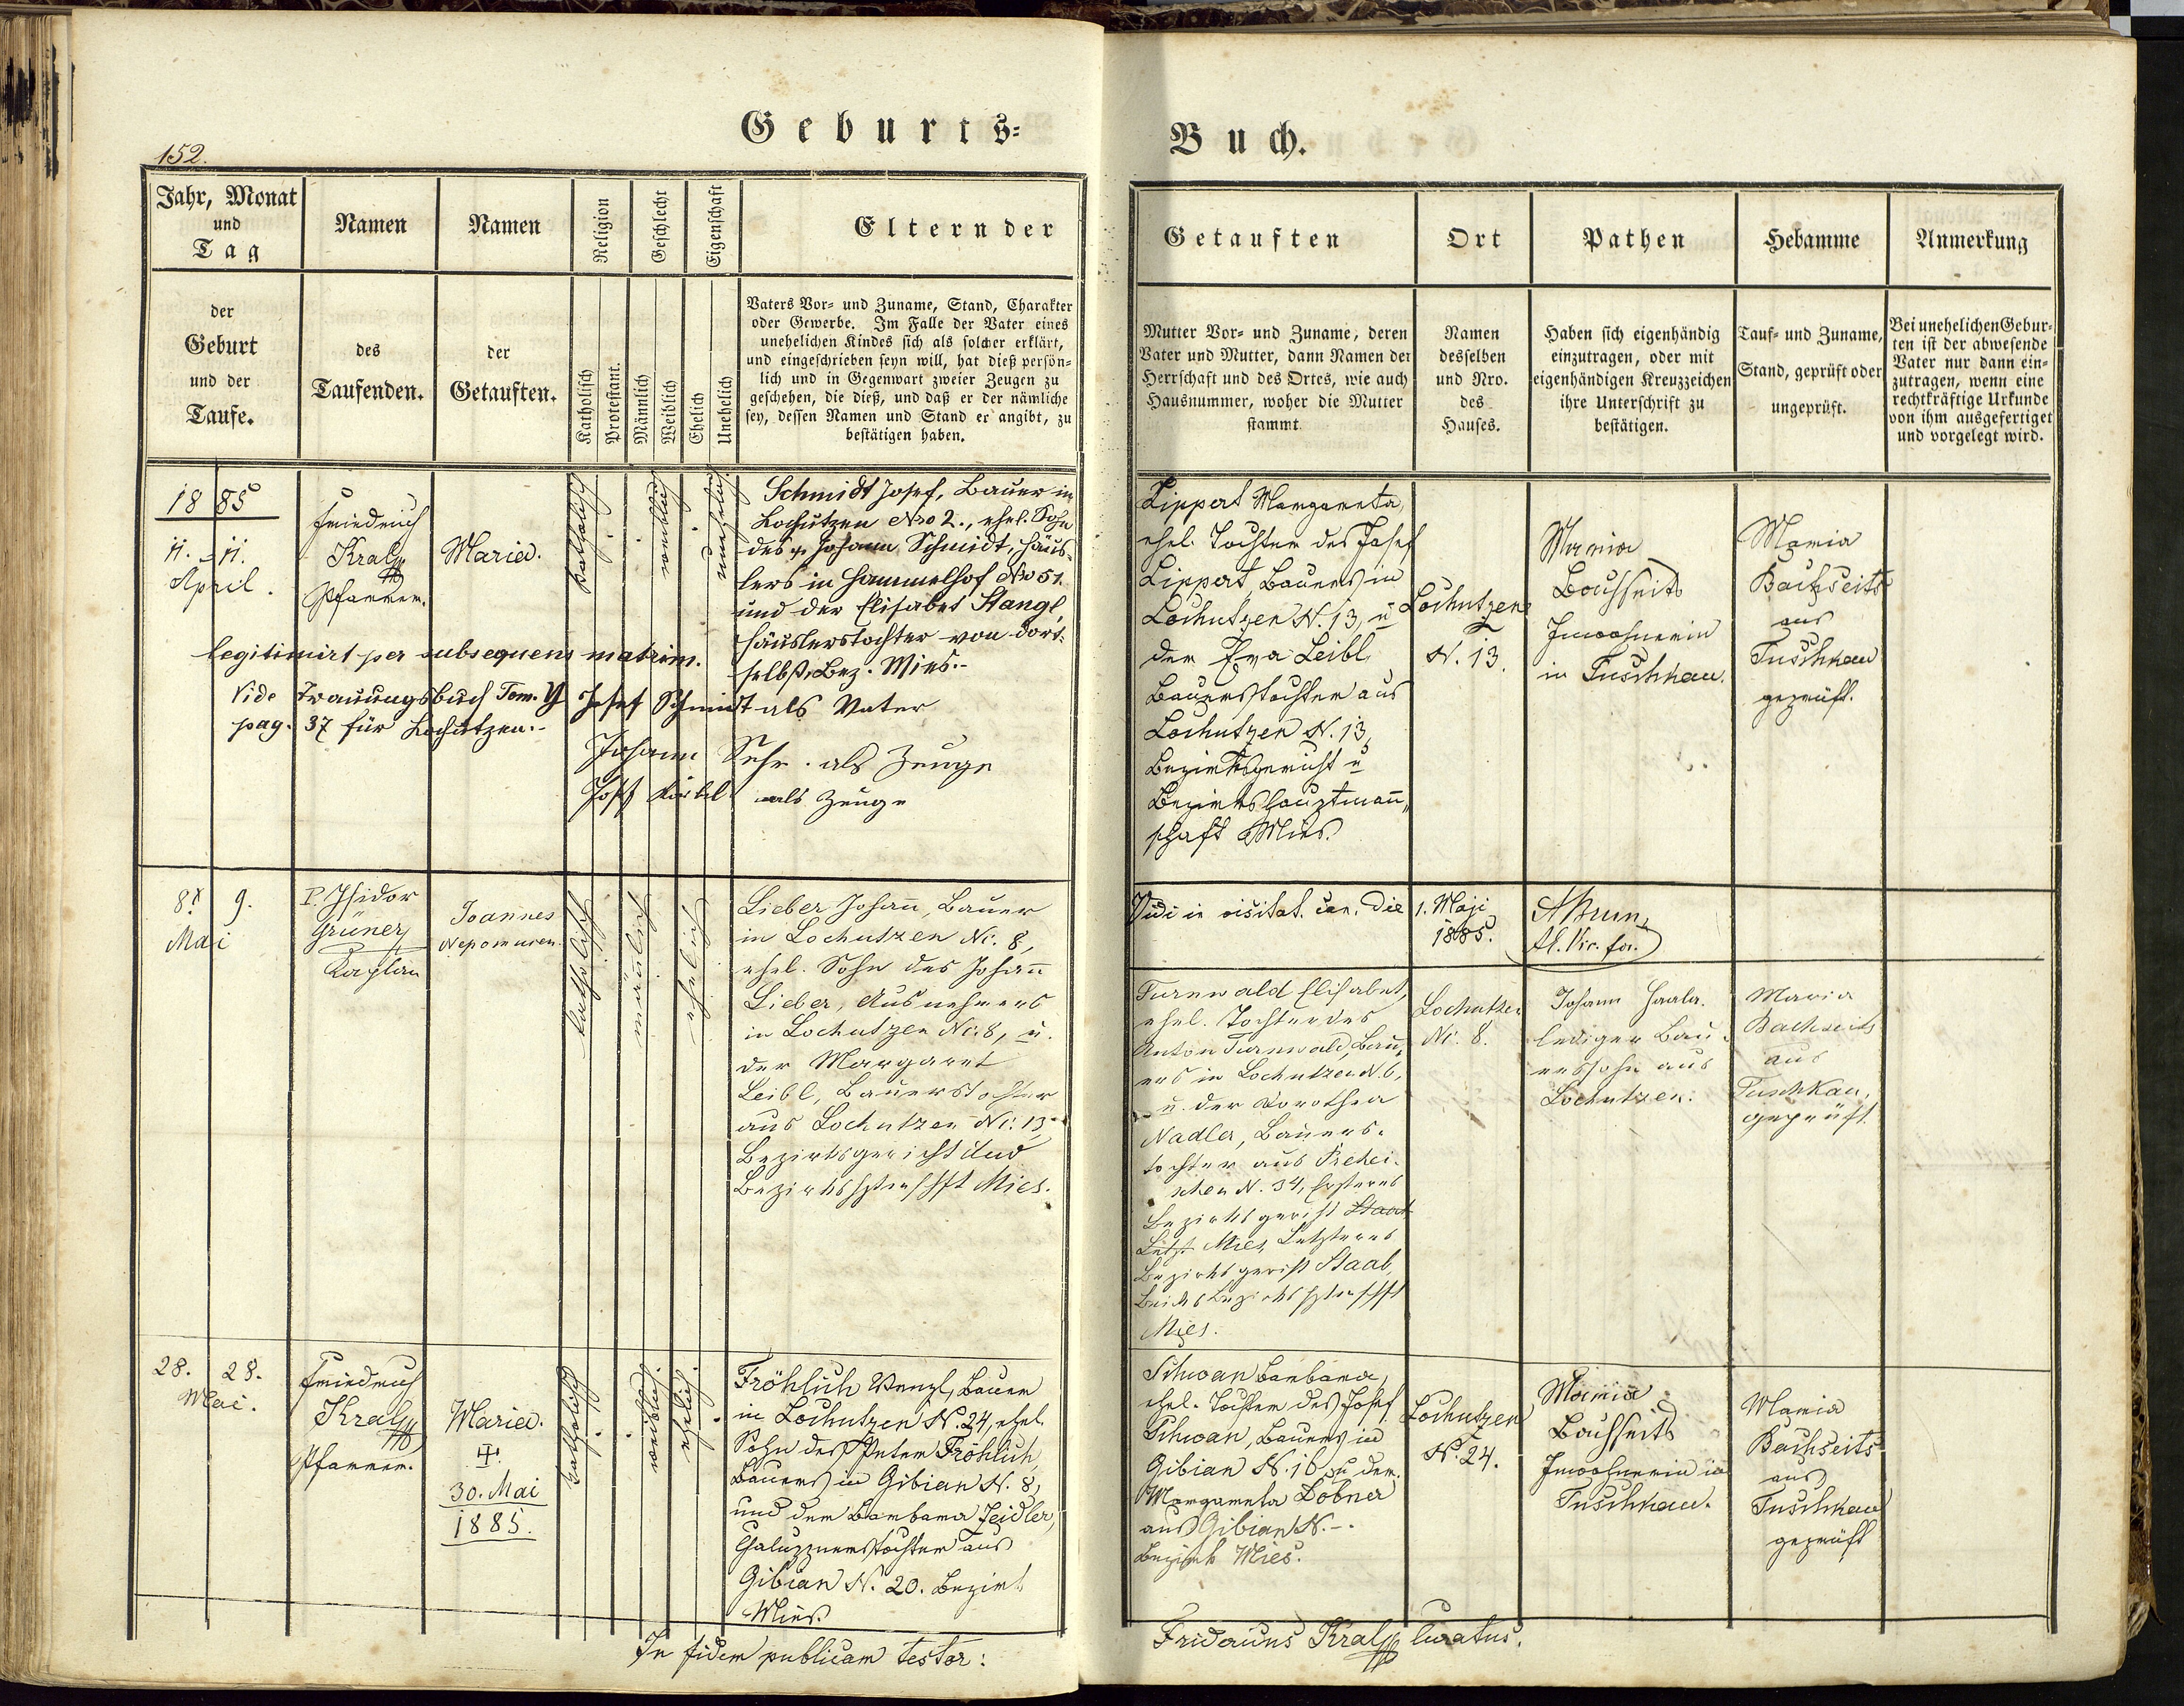 152.
Geburts=
Buch.
Jahr, Monat
und
Tag
Namen
Namen
Religion
Geschlecht
Eigenschaft
Eltern der
der
Geburt
und der
Taufe.
des
Taufenden.
der
Getauften.
Katholisch
Protestant.
Männlich
Weiblich
Ehelich
Unehelich
Vaters Vor= und Zuname, Stand, Charakter
oder Gewerbe. Im Falle der Vater eines
unehelichen Kindes sich als solcher erklärt,
und eingeschrieben seyn will, hat dieß persön=
lich und in Gegenwart zweier Zeugen zu
geschehen, die dieß, und daß er der nämliche
sey, dessen Namen und Stand er angibt, zu
bestätigen haben.
Getauften
Ort
Pathen
Hebamme
Anmerkung
Mutter Vor= und Zuname, deren
Vater und Mutter, dann Namen der
Herrschaft und des Ortes, wie auch
Hausnummer, woher die Mutter
stammt.
Namen
desselben
und Nro.
des
Hauses.
Haben sich eigenhändig
einzutragen, oder mit
eigenhändigen Kreuzzeichen
ihre Unterschrift zu
bestätigen.
Tauf= und Zuname,
Stand, geprüft oder
ungeprüft.
Bei unehelichen Gebur=
ten ist der abwesende
Vater nur dann ein=
zutragen, wenn eine
rechtkräftige Urkunde
von ihm ausgefertiget
und vorgelegt wird.
1885
11. 11.
April.
Friedrich
Kral
Pfarrer.
Maria.
katholisch
weiblich
unehelich
Schmidt Josef, Bauer in
Lochutzen Nro 2., ehel. Sohn
des Johann Schmidt, Häus=
lers in Hammelhof No 51.
und der Elisabet Stangl,
Häuslerstochter von dort=
selbst, Bez. Mies.-
legitimirt per subsequens matrim.
Vide Trauungsbuch Tom. Y
pag. 37 für Lochutzen.-
Josef Schmidt als Vater
Johann als Zeuge
als Zeuge
Lippert Margareta,
ehel. Tochter des Josef
Lippert Bauers in
Lochutzen N. 13, u
der Eva Leibl,
Bauerstochter aus
Lochutzen N. 13,
Bezirksgericht u
Bezirkshauptmann„
schaft Mies.
Lochutzen
N. 13.
Maria
Bachseits
Inwohnerin
in Tuschkau.
Maria
Bachseits
aus
Tuschkau
geprüft.
8. 9.
Mai
P. Isidor
Grüner
Kaplan
Joannes
Nepomucen.
katholisch
mänlich
ehelich
Lieber Johann, Bauer
in Lochutzen Nr. 8,
ehel. Sohn des Johann
Lieber, Ausnehmers
in Lochutzen Nr: 8, u.
der Margaret
Leibl, Bauerstochter
aus Lochutzen Nr: 13
Bezirksgericht und
Bezirkshptmschft Mies.
Vidi in visitat. can. die 1. Maji
1885.
Turnwald Elisabet,
ehel. Tochter des
Anton Turnwald, Bau=
ers in Lochutzen N. 6,
u. der Dorothea
Nadler, Bauers=
tochter aus Prehei=
schen N. 34, Ersteres
Bezirksgericht Staab
Mies, Letzteres
Bezirksgericht Staab,
Beides Bezirkshptmschft
Mies.
Lochutzen
Nr. 8.
Johann
lediger Bau=
erssohn aus
Lochutzen.
Maria
Bachseits
aus
Tuschkau,
geprüft.
28. 28.
Mai.
Friedrich
Kral
Pfarrer.
Maria.
+.
30. Mai
1885.
katholisch
weiblich.
ehelich.
Fröhlich Wenzl, Bauer
in Lochutzen N. 24, ehel.
Sohn des Peter Fröhlich,
Bauers in Gibian N. 8,
und der Barbara Zeidler,
Chaluppnerstochter aus
Gibian N. 20. Bezirk
Mies.
Schwan Barbara,
ehel. Tochter des Josef
Schwan, Bauers in
Gibian N. 16, u der
Margareta Dobner
aus Gibian N. -.
Bezirk Mies.
Lochutzen
N. 24.
Maria
Bachseits
Inwohnerin in
Tuschkau.
Maria
Bachseits
aus
Tuschkau
geprüft
In fidem publicam testor:
Fridericus Kral, Curatus.